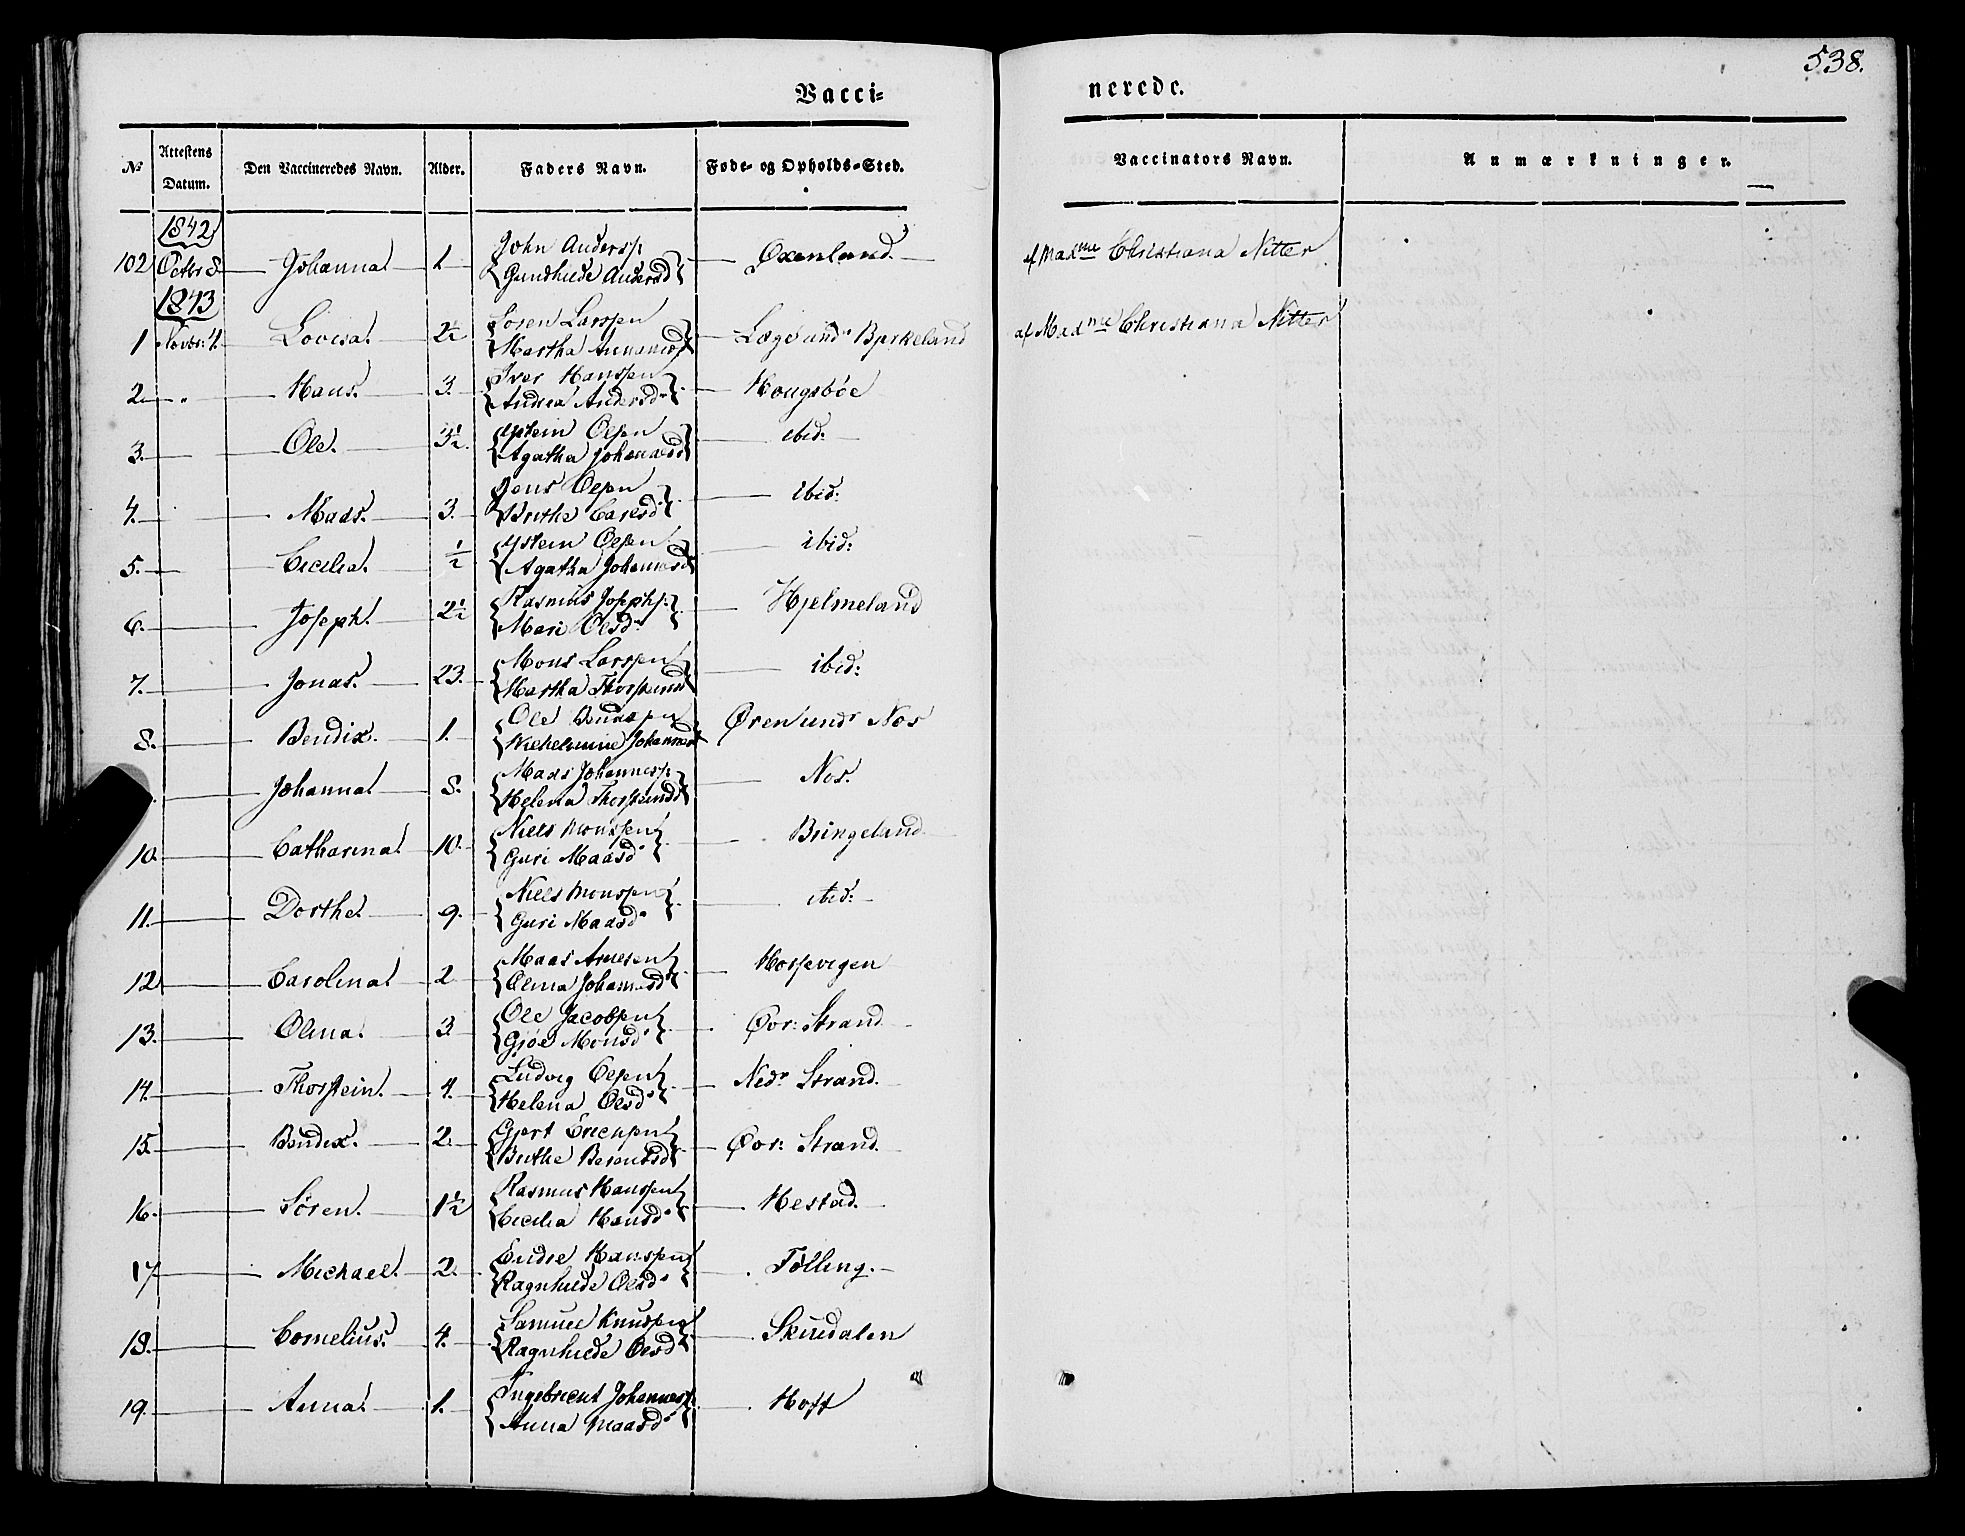 538.
Vacci-
nerede.
No Attestens Datum. Den Vaccineredes Navn. Alder. Faders Navn. Føde- og Opholds-Sted. Vaccinators Navn. Anmærkninger.
1842
102 Octbr 8. Johanna 1 John Andersp Gunhilde Andersd Oxenland. af Madme Christiana Nitter
1843
1 Novbr: 1. Lovisa 2½ Søren Larssen Martha Lægd und Byrkeland af Madme Christiana Nitter
2. Hans. 3. Iver Hanssen Andrea Andersd Hougsbøe
3. Ole. 3½ Ystein Olsen Agatha Johannesd ibid:
4. Mads. 3. Jens Olsen Brithe Larsd ibid:
5. Cecilia. ½ Ystein Olsen Agatha Johannesd ibid:
6. Joseph. 2½ Rasmus Josephs. Mari Olsd Hjelmeland
7. Jonas. 23. Mons Larssen Martha ibid:
8. Bendix. 1. Ole Wilhelmine Johannesd Øren und Nos
Johanna 8. Mads Johannesp. Helena Nos.
10. Catharina 10. Niels Monssen Guri Maasd Bringeland
11. Dorthe 9. Niels Monssen Guri Maasd ibid:
12 Carolina 2 Maas Arnesen Olina Johannesd
13. Olina 3 Ole Jacobsen Gjøe Monsd Øvr: Strand
14. Thorstein. 4. Ludvig Olsen Helena Olsd Nedr Strand.
15. Bendix. 2. Gjert Erichsen Brithe Berentsd Øvr: Strand.
16. Søren. 1½ Rasmus Hanssen Cecilia Hansd Hestad.
17 Michael. 2. Endre Hanssen Ragnhilde Olsd Tolling.
18. Cornelius. 4. Samuel Knudsen Ragnhilde Olsd
19. Anna 1. Ingebricht Johannesp. Anna Maasd Hoff